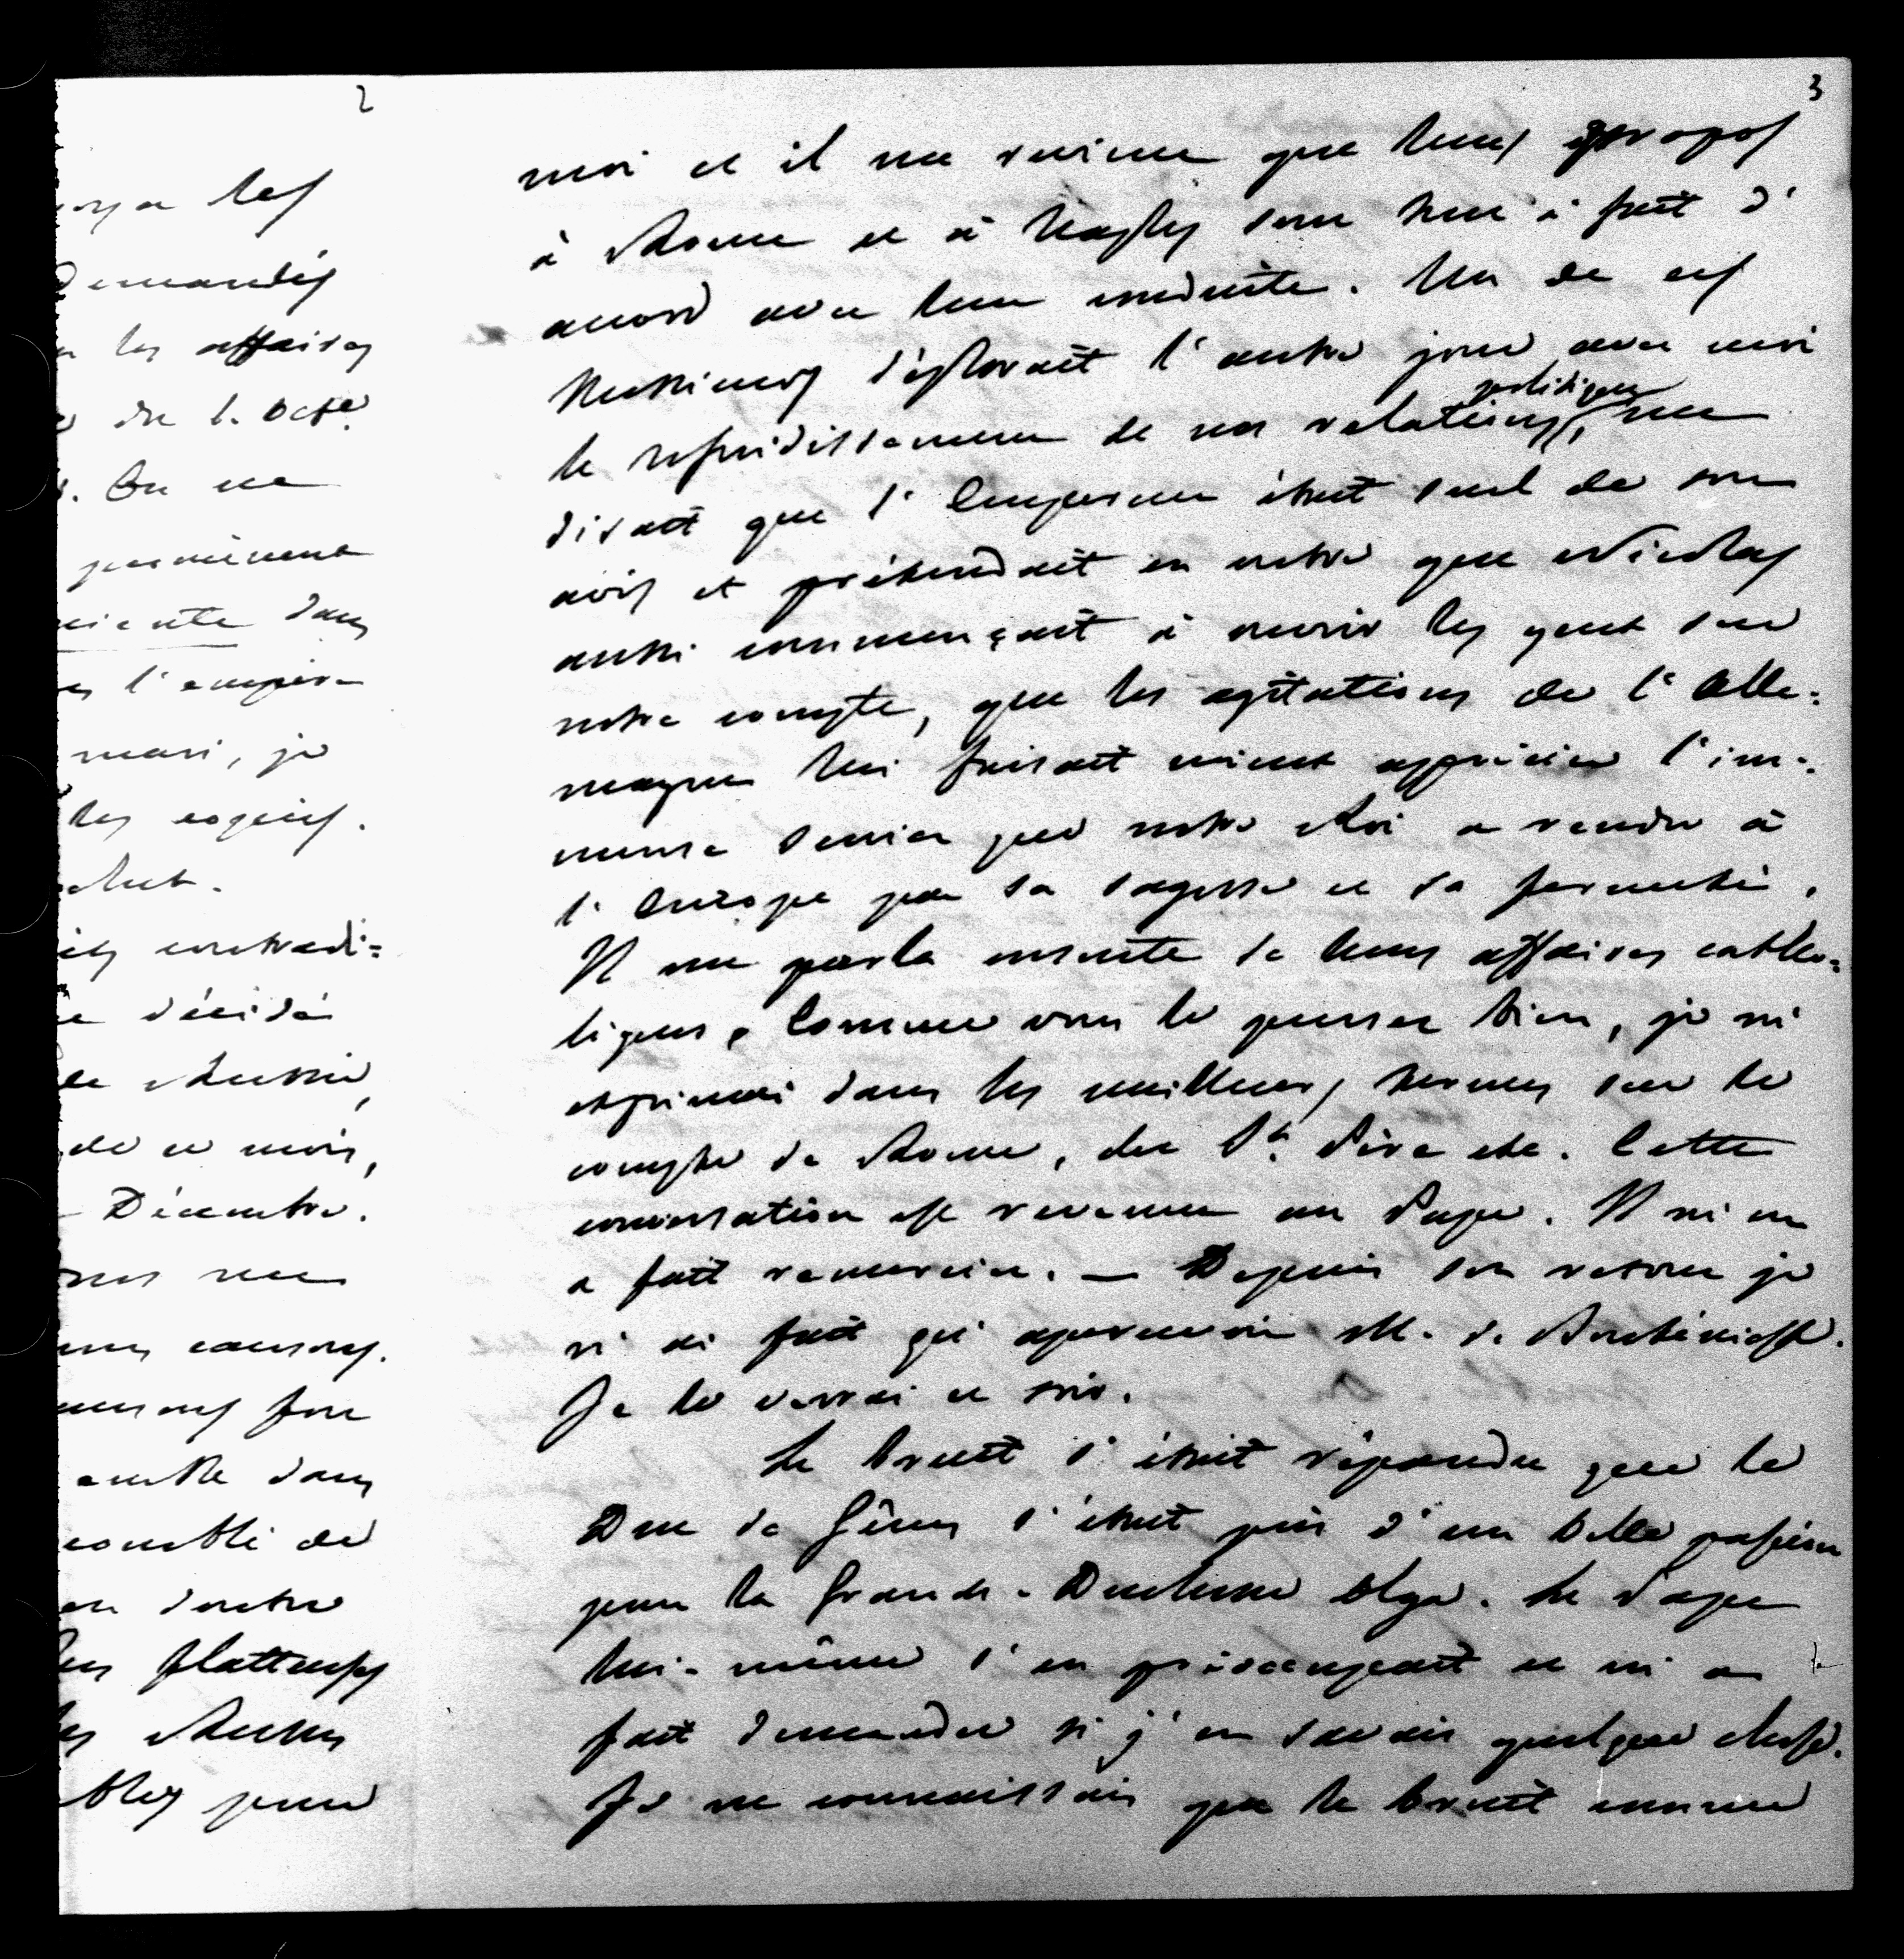 2
les
demandés
les affaires
du 1. Oct.e
On ne
dans
l'empire
mari, je
les copies.
contradi=
décidé
de Russie,
de ce mois,
Décembre.
causons.
dans
comblé de
outre
flatteuses
les Russes
pour
3
moi et il me revient que leurs propos
à Rome et à Naples sont tout à fait d'
accord avec leur conduite. Un de ces
Messieurs déplorait l'autre jour avec moi
le refroidissement de nos relations politiques, me
disait que l'Empereur était seul de son
avis et prétendait en outre que Nicolas
aussi commençait à ouvrir les yeux sur
notre compte, que les agitations de l'Alle=
magne lui faisait mieux apprécier l'im=
mense service que notre Roi a rendu à
l'Europe par sa sagesse et sa fermeté.
Il me parla ensuite de leurs affaires catho=
liques. Comme vous le pensez bien, je m'
exprimai dans les meilleurs termes sur le
compte de Rome, du St. Père etc. Cette
conversation est revenue au Pape. Il m'en
a fait remercier. — Depuis son retour je
n'ai fait qu'apercevoir M. de Boutenieff.
Je le verrai ce soir.
Le bruit s'était répandu que le
Duc de Gênes s'était pris d'une belle passion
pour la Grande-Duchesse Olga. Le Pape
lui-même s'en préoccupait et m'a
fait demander si j'en savais quelque chose.
Je ne connaissais que le bruit comme